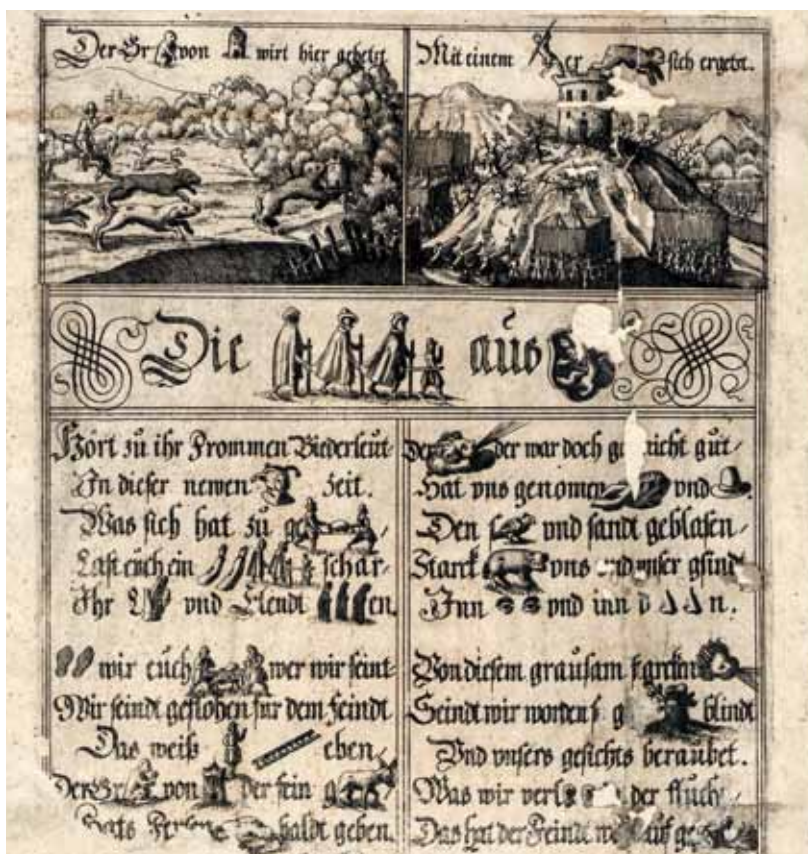 Der Gr von wirt hier gehetzt
Mit einem er sich ergetzt.
Die aus
Hört zu ihr Frommen Biederleut
In dieser newen Zeit.
Was sich hat zu ge
Last euch ein schar
Ihr L vnd Elendt en.
wir euch wer wir seint
Wir seindt geflohen für dem feindt
Das weiß eben,
Der Gr von der sein g
Hats baldt geben.
Der der war doch nicht gut
Hat vns genomen vnd
Den s vnd sandt geblasen
Starck vns vnd vnser gsindt
Inn vnd inn d n.
Von diesem grausam starcken
Seindt wir worden g blindt
Vnd vnsers gesichts beraubet.
Was wir verl der fluch
Das hat der Feindt